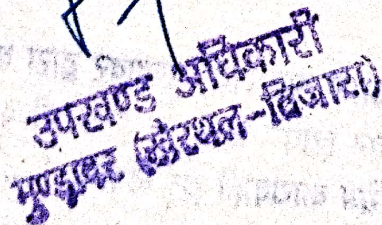 उपखण्ड अधिकारी
मुण्डावर (खैरथल-तिजारा)